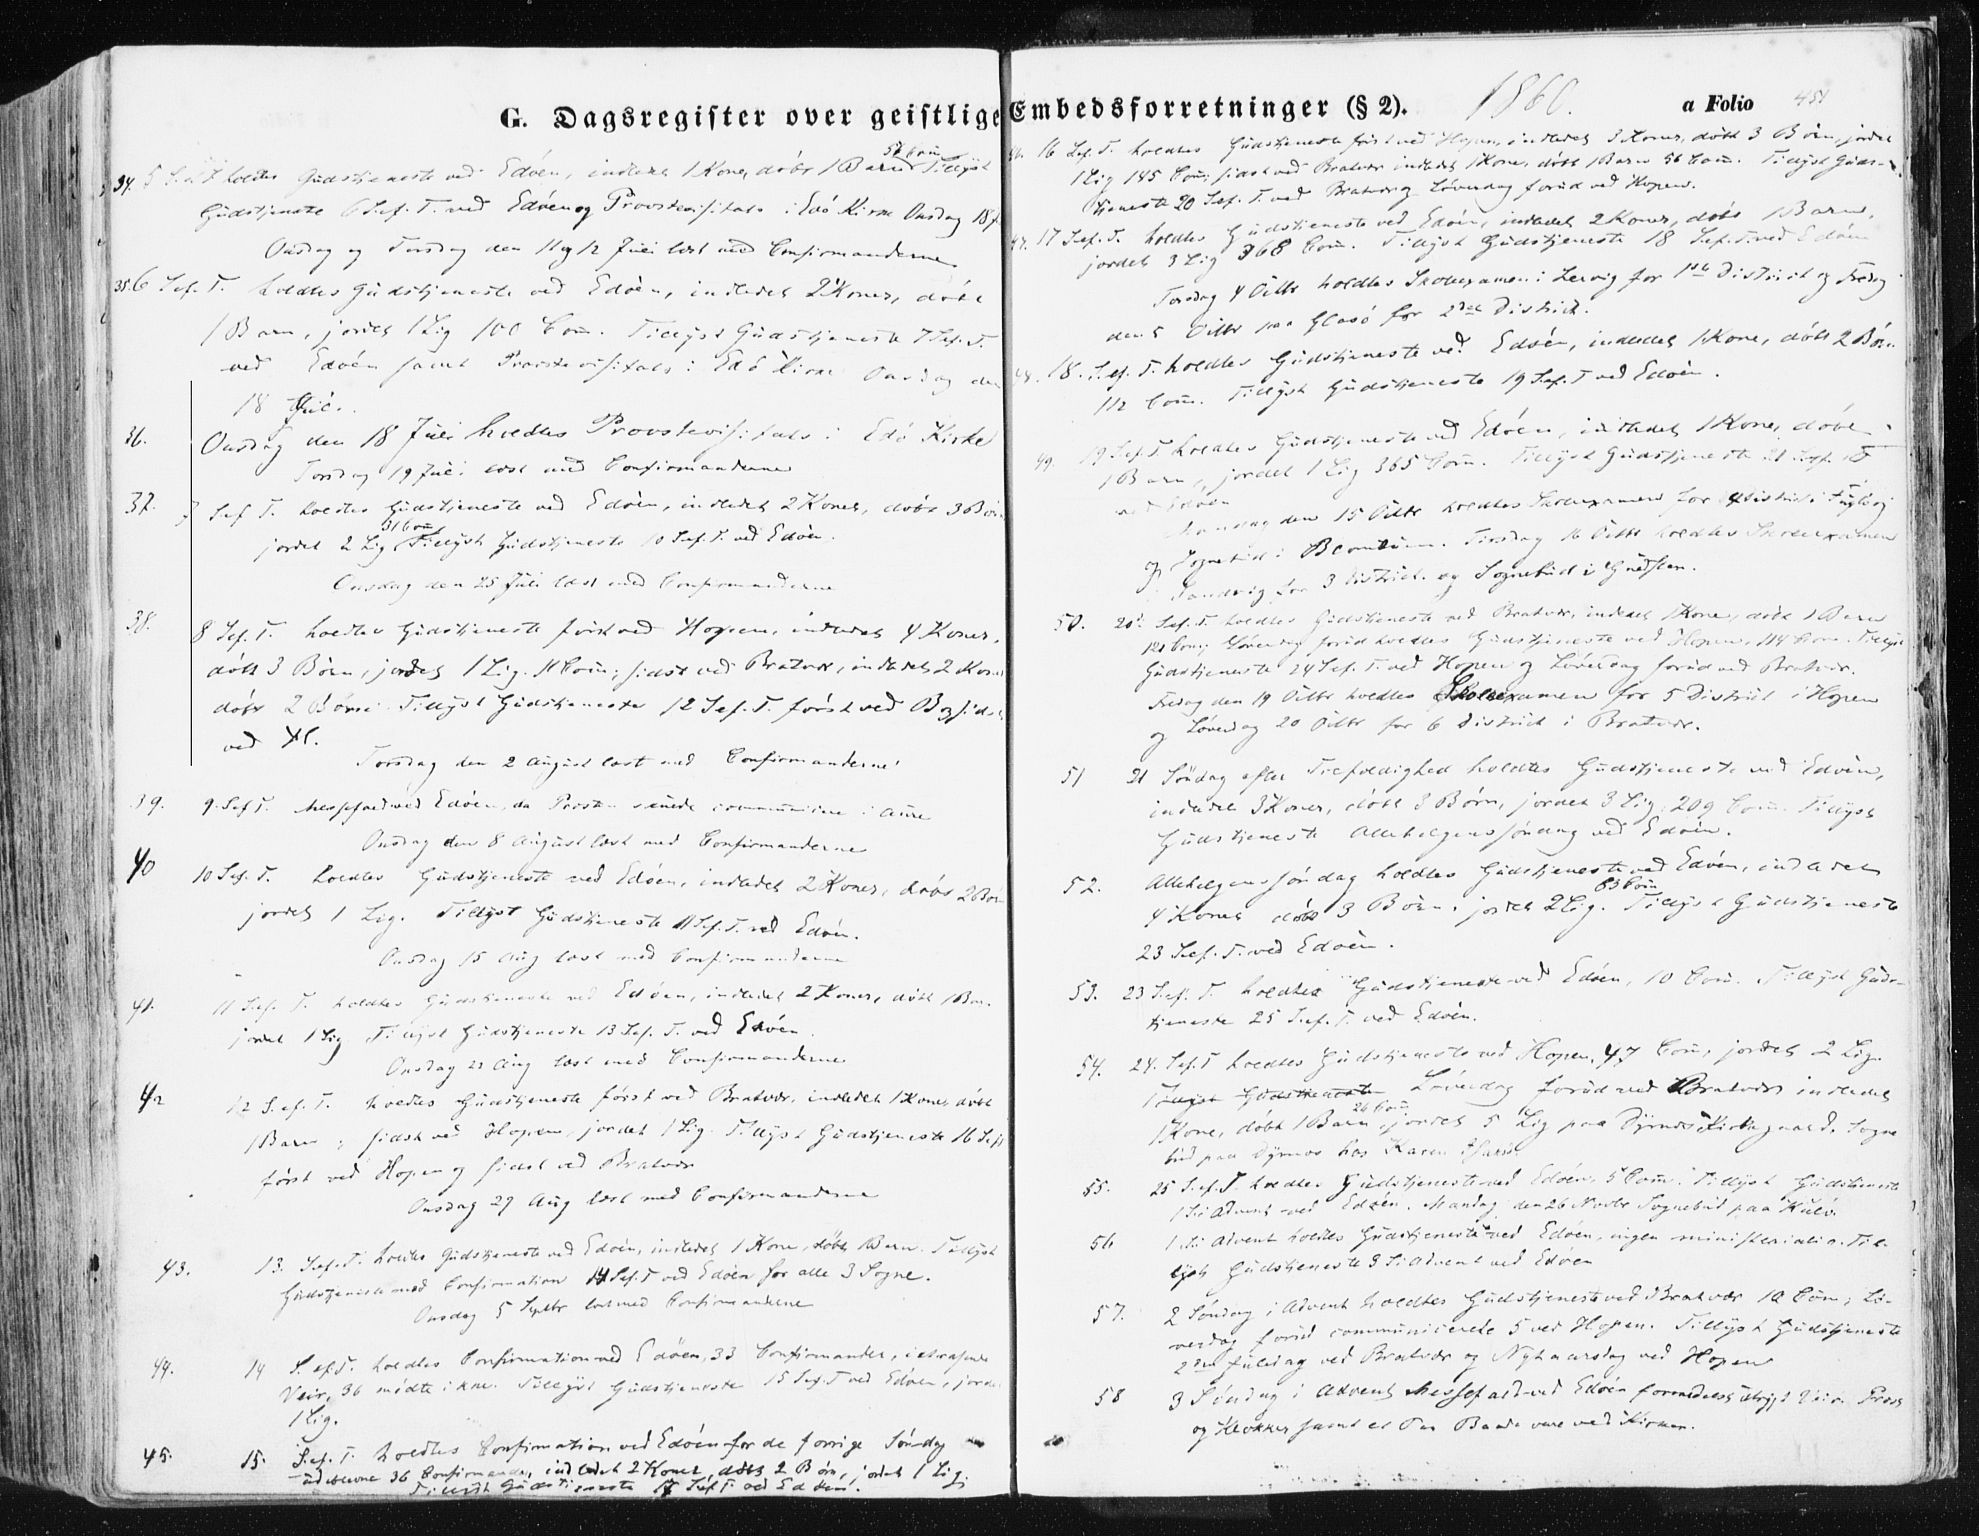 G. Dagsregister over geistlige Embedsforretninger (§ 2). 1860. a Folio 451
34. 5 S. ef. T. holdtes Gudstjeneste ved Edöen, indledet 1 Kone, döbt 1 Barn 57 Com. Tillyst
Gudstjeneste 6 S. ef. T. ved Edöen og Provstevisitats i Edö Kirke Onsdag 18 J
Onsdag og Torsdag den 11 og 12 Juli læst med Confirmanderne
35. 6 S. ef. T. holdtes Gudstjeneste ved Edöen, indledet 2 Koner, döbt
1 Barn, jordet 1 Lig 100 Com. Tillyst Gudstjeneste 7 S. ef. T.
ved Edöen samt Provstevisitats i Edö Kirke Onsdag den
18 Juli.
36. Onsdag den 18 Juli holdtes Provstevisitats i Edö Kirke
Torsdag 19 Juli læst med Confirmanderne
37. 7 S. ef. T. holdtes Gudstjeneste ved Edöen, indledet 2 Koner, döbt 3 Börn
jordet 2 Lig 31 Com. Tillyst Gudstjeneste 10 S. ef. T. ved Edöen.
Onsdag den 25 Juli læst med Confirmanderne
38. 8 S. ef. T. holdtes Gudstjeneste först ved Hopen, indledet 4 Koner,
döbt 3 Börn, jordet 1 Lig. 11 Com; sidst ved Bratvær, indledet 2 Koner
döbt 2 Börn. Tillyst Gudstjeneste 12 S. ef. T. först ved B og sidst
ved H.
Torsdag den 2 August læst med Confirmanderne
39. 9. S. ef. T. Messefald ved Edöen, da Præsten communicere i Aure
Onsdag den 8 August læst med Confirmanderne
40 10 S. ef. T. holdtes Gudstjeneste ved Edöen, indledet 2 Koner, döbt 2 Börn
jordet 1 Lig. Tillyst Gudstjeneste 11 S. ef. T. ved Edöen.
Onsdag 15 Aug læst med Confirmanderne
41. 11 S. ef. T. holdtes Gudstjeneste ved Edöen, indledet 2 Koner, döbt 1 Bar.
jordet 1 Lig Tillyst Gudstjeneste 13 S. ef. T. ved Edöen.
Onsdag 22 Aug læst med Confirmanderne
42 12 S. ef. T. holdtes Gudstjeneste först ved Bratvær, indledet 1 Kone, döbt
1 Barn; sidst ved Hopen, jordet 1 Lig. Tillyst Gudstjeneste 16 S. ef.
först ved Hopen og sidst ved Bratvær
Onsdag 29 Aug læst med Confirmanderne
43. 13. S. ef. T. holdtes Gudstjeneste ved Edöen, indledet 1 Kone, döbt 1 Barn. Tillyst
Gudstjeneste med Confirmation 14 S. ef. T ved Edöen for alle 3 Sogne.
Onsdag 5 Septbr læst med Confirmanderne
44. 14 S. ef. T. holdtes Confirmation ved Edöen, 33 Confirmander,
Veir, 36 mödte i kne. Tillyst Gudstjeneste 15 S. ef. T ved Edöen, jordet
1 Lig.
45. 15. S. ef. T. holdtes Confirmation ved Edöen for de forrige Söndag
udeblevne 36 Confirmander, indledet 2 Koner, döbt 2 Börn, jordet 1 Lig.
Tillyst Gudstjeneste 17 S. ef. T. ved Edöen.
46. 16 S. ef. T. holdtes Gudstjeneste först ved Hopen, indledet 3 Koner, döbt 3 Börn, jordet
1 Lig 145 Com; sidst ved Bratvær indledet 1 Kone, döbt 1 Barn 56 Com. Tillyst Guds-
tjeneste 20 S. ef. T. ved Bratvær og Löverdag forud ved Hopen.
47. 17 S. ef. T. holdtes Gudstjeneste ved Edöen, indledet 2 Koner, döbt 1 Barn,
jordet 3 Lig 368 Com. Tillyst Gudstjeneste 18 S. ef. T. ved Edöen
Torsdag 4 Octbr holdtes Skoleexamen i Lervig for 1ste District og Fredag
den 5 Octbr paa Glasö for 2det District.
48. 18. S. ef. T. holdtes Gudstjeneste ved Edöen, indledet 1 Kone, döbt 2 Börn
112 Com. Tillyst Gudstjeneste 19 S. ef. T ved Edöen.
49. 19 S. ef. T. holdtes Gudstjeneste ved Edöen, indledet 1 Kone, döbt
1 Barn, jordet 1 Lig 365 Com. Tillyst Gudstjeneste 21 S. ef. T
ved Edöen
Mandag den 15 Octbr holdtes Skoleexamen for 4 District i Fuglö
og Sognebud i. Tirsdag 16 Octbr holdtes Skoleexamen
i Sandvig for 3 District og Sognebud i.
50. 20. S. ef. T. holdtes Gudstjeneste ved Bratvær, indledet 1 Kone, döbt 1 Barn
121 Com; Löverdag forud holdtes Gudstjeneste ved Hopen, 114 Com. Tillyst
Gudstjeneste 24 S. ef. T. ved Hopen og Löverdag forud ved Bratvær.
Fredag den 19 Octbr holdtes Skoleexamen for 5 District i Hopen
og Löverdag 20 Octbr for 6 District i Bratvær.
51 21 Söndag efter Trefoldighed holdtes Gudstjeneste ved Edöen,
indledet 3 Koner, döbt 3 Börn, jordet 3 Lig. 209 Com. Tillyst
Gudstjeneste Allehelgenssöndag ved Edöen.
52. Allehelgenssöndag holdtes Gudstjeneste ved Edöen, indledet
4 Koner döbt 3 Börn, jordet 2 Lig. 83 Com Tillyst Gudstjeneste
23 S. ef. T. ved Edöen.
53. 23 S. ef. T. holdtes Gudstjeneste ved Edöen, 10 Com. Tillyst Guds-
tjeneste 25 S. ef. T. ved Edöen.
54. 24. S. ef. T holdtes Gudstjeneste ved Hopen, 47 Com, jordet 2 Lig.
Tillyst Gudstjeneste Löverdag forud ved Bratvær indledet
1 Kone, döbt 1 Barn 26 Com, jordet 5 Lig paa Dyrnæs Kirkegaard. Sogne
bud paa Dyrnæs hos Karen
55. 25 S. ef. T. holdtes Gudstjeneste ved Edöen, 5 Com. Tillyst Gudstjeneste
1 S. i Advent ved Edöen. Mandag den 26 Novbr Sognebud paa Kulö.
56 1 S. i Advent holdtes Gudstjeneste ved Edöen, ingen ministerialia. Til-
lyst Gudstjeneste 3 S. i Advent ved Edöen
57. 2 Söndag i Advent holdtes Gudstjeneste ved Bratvær 10 Com; Lö-
verdag forud communicerede 5 ved Hopen. Tillyst Gudstjeneste
2den Juledag ved Bratvær og Nytaarsdag ved Hopen
58 3 Söndag i Advent Messefald ved Edöen formedelst Veir. Præst
og Klokker samt et Par Baade vare ved Kirken.